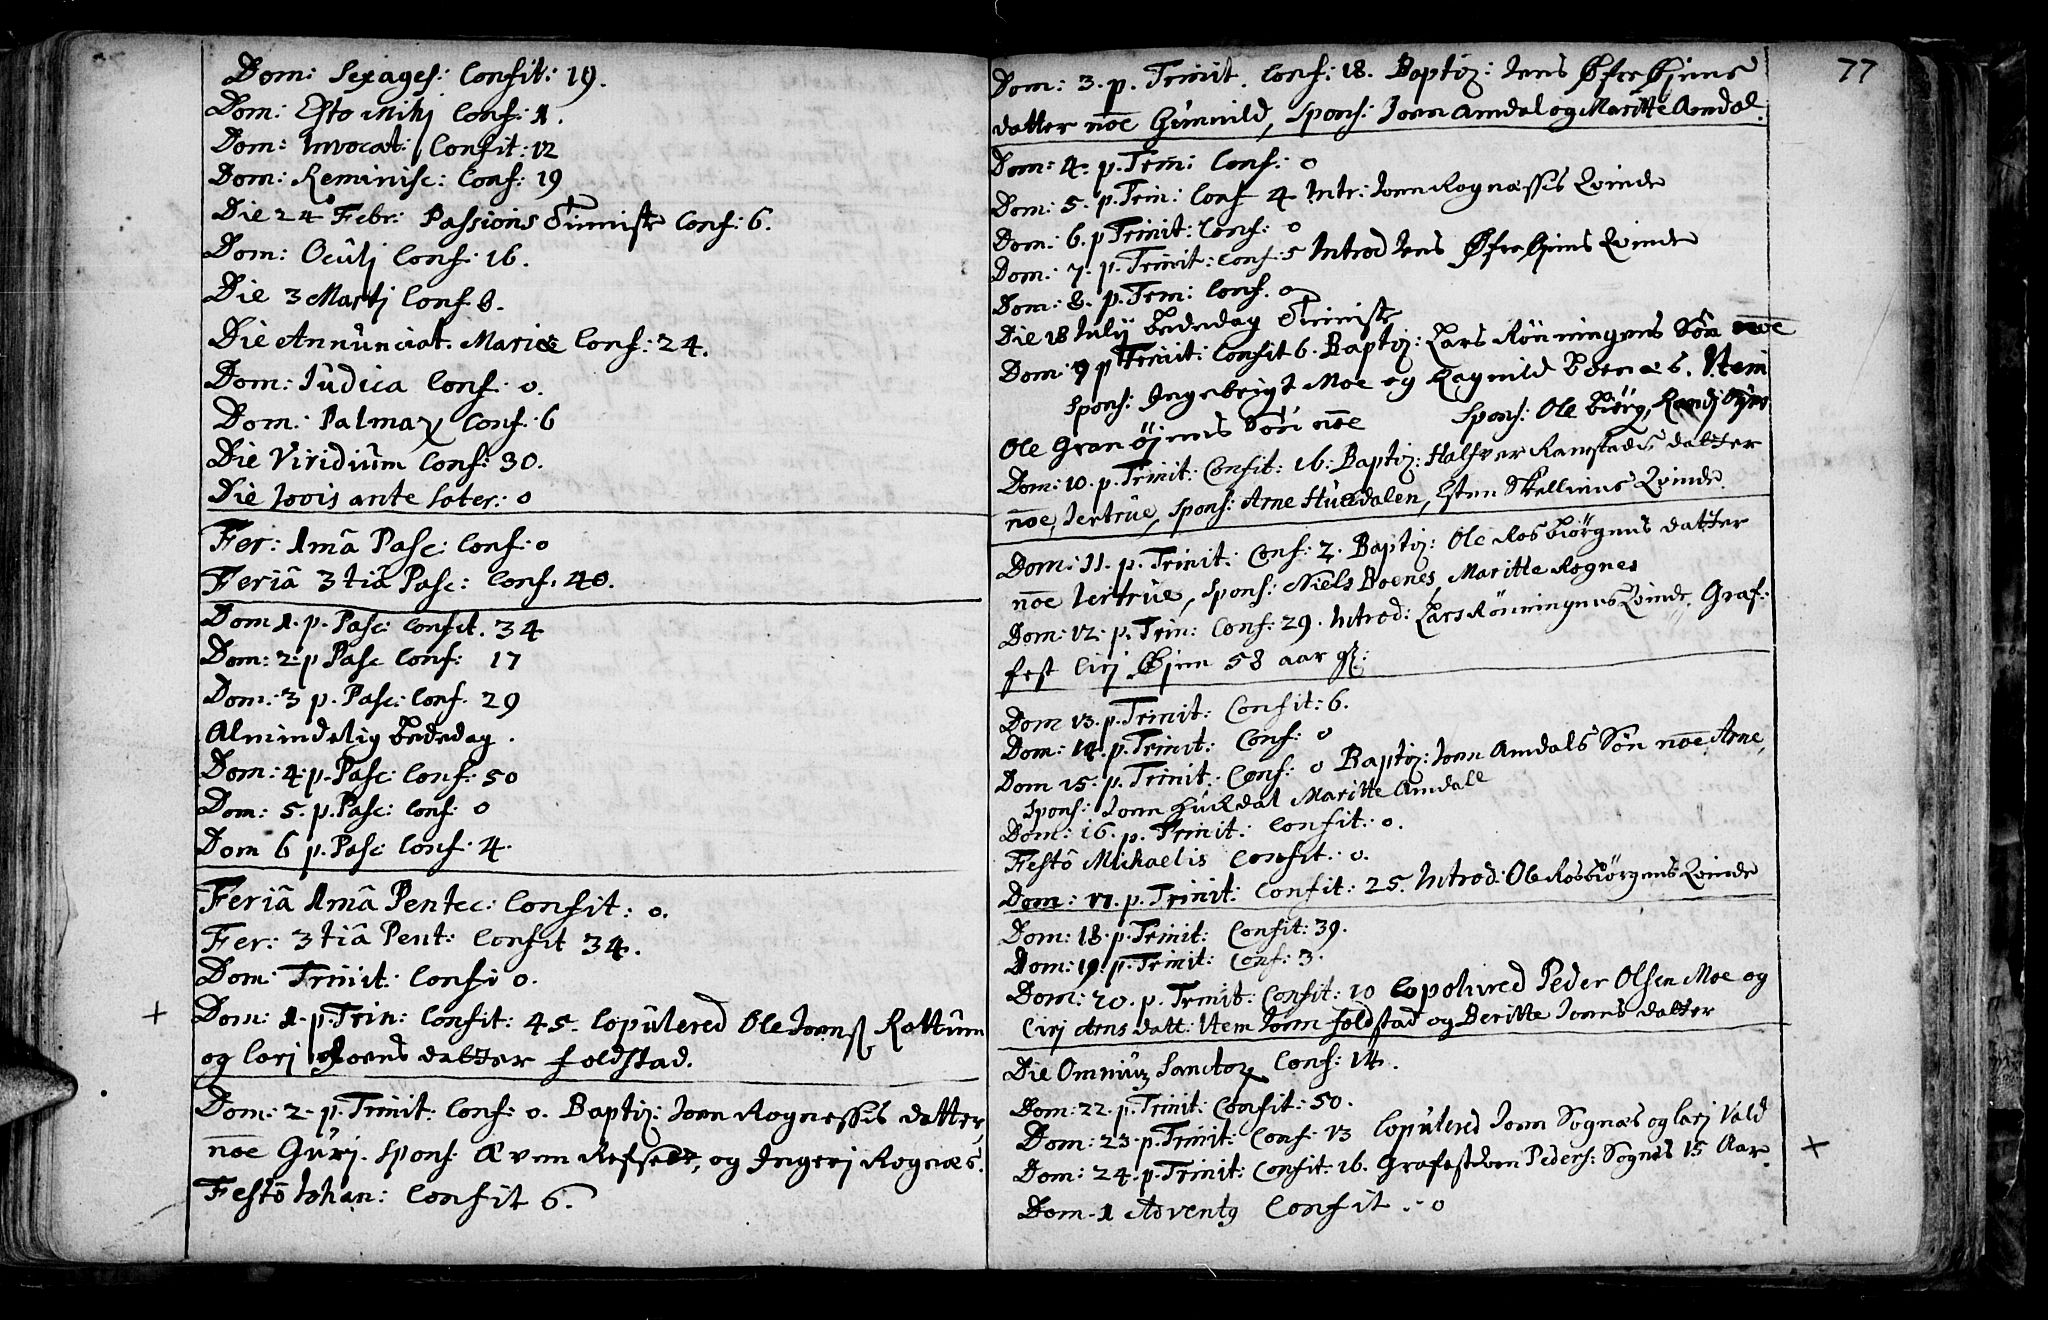 Dom: Sexages: Confit: 19.
Dom: Esto Mihj Conf: 1.
Dom: Invocat: Confit: 12
Dom: Reminisc: Conf: 19
Die 24 Febr: Passions Tienniste Conf: 6.
Dom: Oculj Conf: 16.
Die 3 Martj Conf. 8.
Die Annûnciat. Mariæ Conf: 24.
Dom: Iûdica Conf. 0.
Dom: Palmaꝝ Conf: 6
Die Viridiûm Conf: 30.
Die Jovis ante Soter: 0
Fer: 1mâ Pasc: Conf: 0
Feriâ 3tiâ Pasc: Conf. 40.
Dom 1. p. Pasc: Confit. 34
Dom: 2. p Pasc Conf: 17
Dom: 3 p. Pasc: Conf. 29
Almindelig Bededag.
Dom: 4. p. Pasc: Conf: 50
Dom: 5. p. Pasc: Conf: 0
Dom 6 p. Pasc: Conf. 4.
Feriâ 1mâ Pentec: Confit: 0.
Fer: 3tiâ Pent: Confit 34.
Dom: Trinit: Confi 0.
+ Dom: 1. p. Trin: Confit: 45. Copûlered Ole Joenss Rottûm
og Carj Joens datter Foldstad.
Dom: 2. p. Trinit: Conf: 0. Baptiz: Joen Rognessis datter,
noe Gûrj. Spons: Ævên Refset, og Ingerj Rognæs.
Festô Johan: Confit 6.
77
Dom: 3. p. Trinit. Conf: 18. Baptiz: Jens ØfreØjens
datter noe Gunnild, Spons: Joen Amdal og Maritte Amdal.
Dom: 4. p. Trin: Conf: 0
Dom: 5. p. Trin: Conf 4 Intr: Joen Rognæssis Qvinde
Dom: 6. p Trinit: Conf: 0
Dom: 7. p. Trinit: Conf: 5 Introd Jens ØfreØjens Qvinde
Dom: 8. p. Trin: Conf. 0
Die 18 Julij Bededag Tienniste
Dom: 9 p Trinit: Confit 6. Baptiz: Lars Rönningens Sön noe
Spons: Ingebrigt Moe og Ragnild Boenæs. Item
Ole Gran öjens Sön noe Spons: Ole Biörg, Randj Öyen
Dom: 10. p. Trinit: Confit: 16: Baptiz: Halfver Ramstads datter
noe, Jertrûe, Spons: Arne Hûkdalen, Esten Skellviens Qvinde.
Dom: 11. p. Trinit: Conf: 2. Baptiz: Ole Rosbiörgens datter
noe Jertrûe, Spons: Niels Boenes, Maritte Rognes
Dom: 12. p. Trin: Conf: 29. Introd: Lars Rönningens Qvinde. Graf-
fest Cirj Øjen 58 aar gl:
Dom 13. p. Trinit: Confit: 6.
Dom: 14. p. Trinit: Conf: 0
Dom 15. p. Trinit: Conf: 0 Baptiz: Joen Amdals Sön noe Arne,
Spons: Joen Hûkdal Maritte Amdall
Dom: 16. p. Trinit: Confit: 0.
Festô Michaelis Confit. 0.
Dom: 17. p. Trinit: Confit: 25. Introd: Ole Rosbiörgens Qvinde
Dom: 18. p. Trinit: Confit: 39.
Dom: 19. p. Trinit: Conf: 3.
Dom: 20. p. Trinit: Confit: 10 Copolered Peder Olsen Moe og
Cirj Arns datt: Item Joen Foldstad og Beritte Joens datter
Die Omniûm Sanctoꝝ Conf: 14.
Dom: 22. p. Trinit: Confit: 50.
Dom: 23. p. Trinit: Conf: 13 Copûlered Jonn Sognæs og Carj Vald
Dom: 24. p. Trinit: Confit: 16. Grafest Iven Peders: Sognes 15 Aar. +
Dom. 1 Adventq Confit. 0